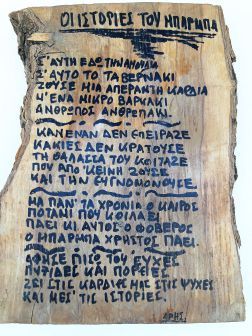 ΟΙ ΙΣΤΟΡΙΕΣ ΤΟΥ ΜΠΑΡΜΠΑ
Σ'ΑΥΤΗ ΕΔΩ ΤΗΝ
Σ'ΑΥΤΟ ΤΟ ΤΑΒΕΡΝΑΚΙ
ΖΟΥΣΕ ΜΙΑ ΑΠΕΡΑΝΤΗ ΚΑΡΔΙΑ
Μ'ΕΝΑ ΜΙΚΡΟ ΒΑΡΚΑΚΙ
ΑΝΘΡΩΠΟΣ
ΚΑΝΕΝΑΝ ΔΕΝ ΕΠΕΙΡΑΖΕ
ΚΑΚΙΕΣ ΔΕΝ ΚΡΑΤΟΥΣΕ
ΤΗ ΘΑΛΑΣΣΑ ΤΟΥ ΚΟΙΤΑΖΕ
ΠΟΥ ΑΠ'ΚΕΙΝΗ ΖΟΥΣΕ
ΚΑΙ ΤΗΝ ΕΥΓΝΩΜΟΝΟΥΣΕ.
ΜΑ ΠΑΝ' ΤΑ ΧΡΟΝΙΑ Ο ΚΑΙΡΟΣ
ΠΟΤΑΜΙ ΠΟΥ ΚΥΛΑΕΙ
ΠΑΕΙ ΚΙ ΑΥΤΟΣ Ο ΦΟΒΕΡΟΣ
Ο ΜΠΑΡΜΠΑ ΧΡΗΣΤΟΣ ΠΑΕΙ.
ΑΦΗΣΕ ΠΙΣΩ ΤΟΥ ΕΥΧΕΣ
ΠΥΞΙΔΕΣ ΚΑΙ ΠΟΡΕΙΕΣ
ΖΕΙ ΣΤΙΣ ΚΑΡΔΙΕΣ ΜΑΣ ΣΤΙΣ ΨΥΧΕΣ
ΚΑΙ ΜΕΣ' ΤΙΣ ΙΣΤΟΡΙΕΣ.
ΑΡΗΣ